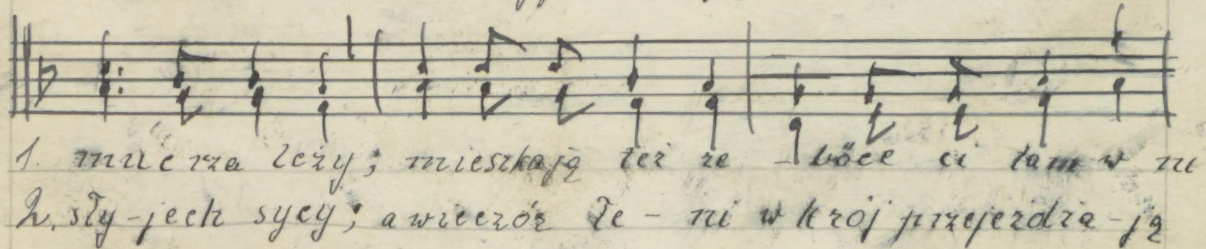 1. muie rza leży; mieszkają też re - böce ci tam w ni
2. sły-jech sycy; a wieczór Łe - ni w krój przejezdza-ją